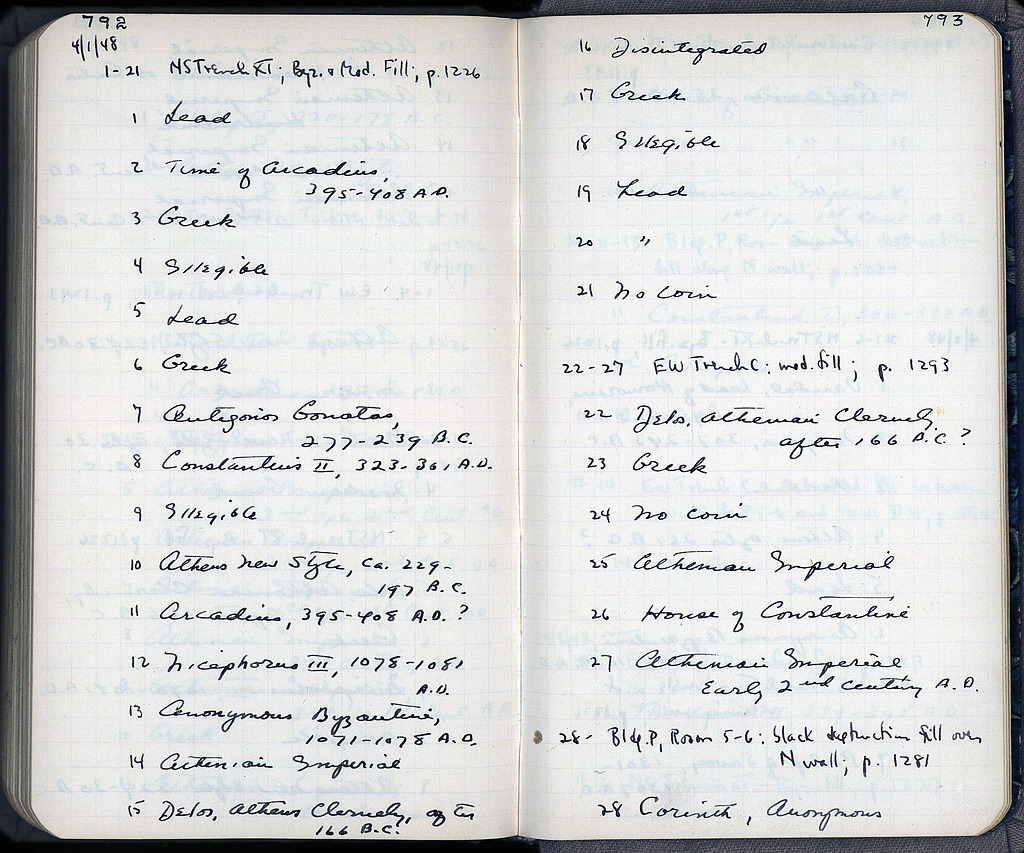 792
4/1/48
1-21 NS Trench XI; Byz. & Mod. Fill; p. 1226
1 Lead
2 Time of Arcadius,
395-408 A.D.
3 Greek
4 Illegible
5 Lead
6 Greek
7 Antigonos Gonatas,
277-239 B.C.
8 Constantius II, 323-361 A.D.
9 Illegible
10 Athens New Style, ca. 229-
197 B.C.
11 Arcadius, 395-408 A.D. ?
12 Nicephorus III, 1078-1081
A.D.
13 Anonymous Byzantine,
1071-1078 A.D.
14 Athenian Imperial
15 Delos, Athens Cleruchy, after
166 B.C.
793
16 Disintegrated
17 Greek
18 Illegible
19 Lead
20 "
21 No coin
22-27 EW Trench C; mod. fill; p. 1293
22 Delos, Athenian Cleruchy
after 166 B.C. ?
23 Greek
24 No coin
25 Athenian Imperial
26 House of Constantine
27 Athenian Imperial
Early 2nd century A.D.
28- Bldg. P, Room 5-6: black destruction fill over
N wall; p. 1281
28 Corinth, Anonymous